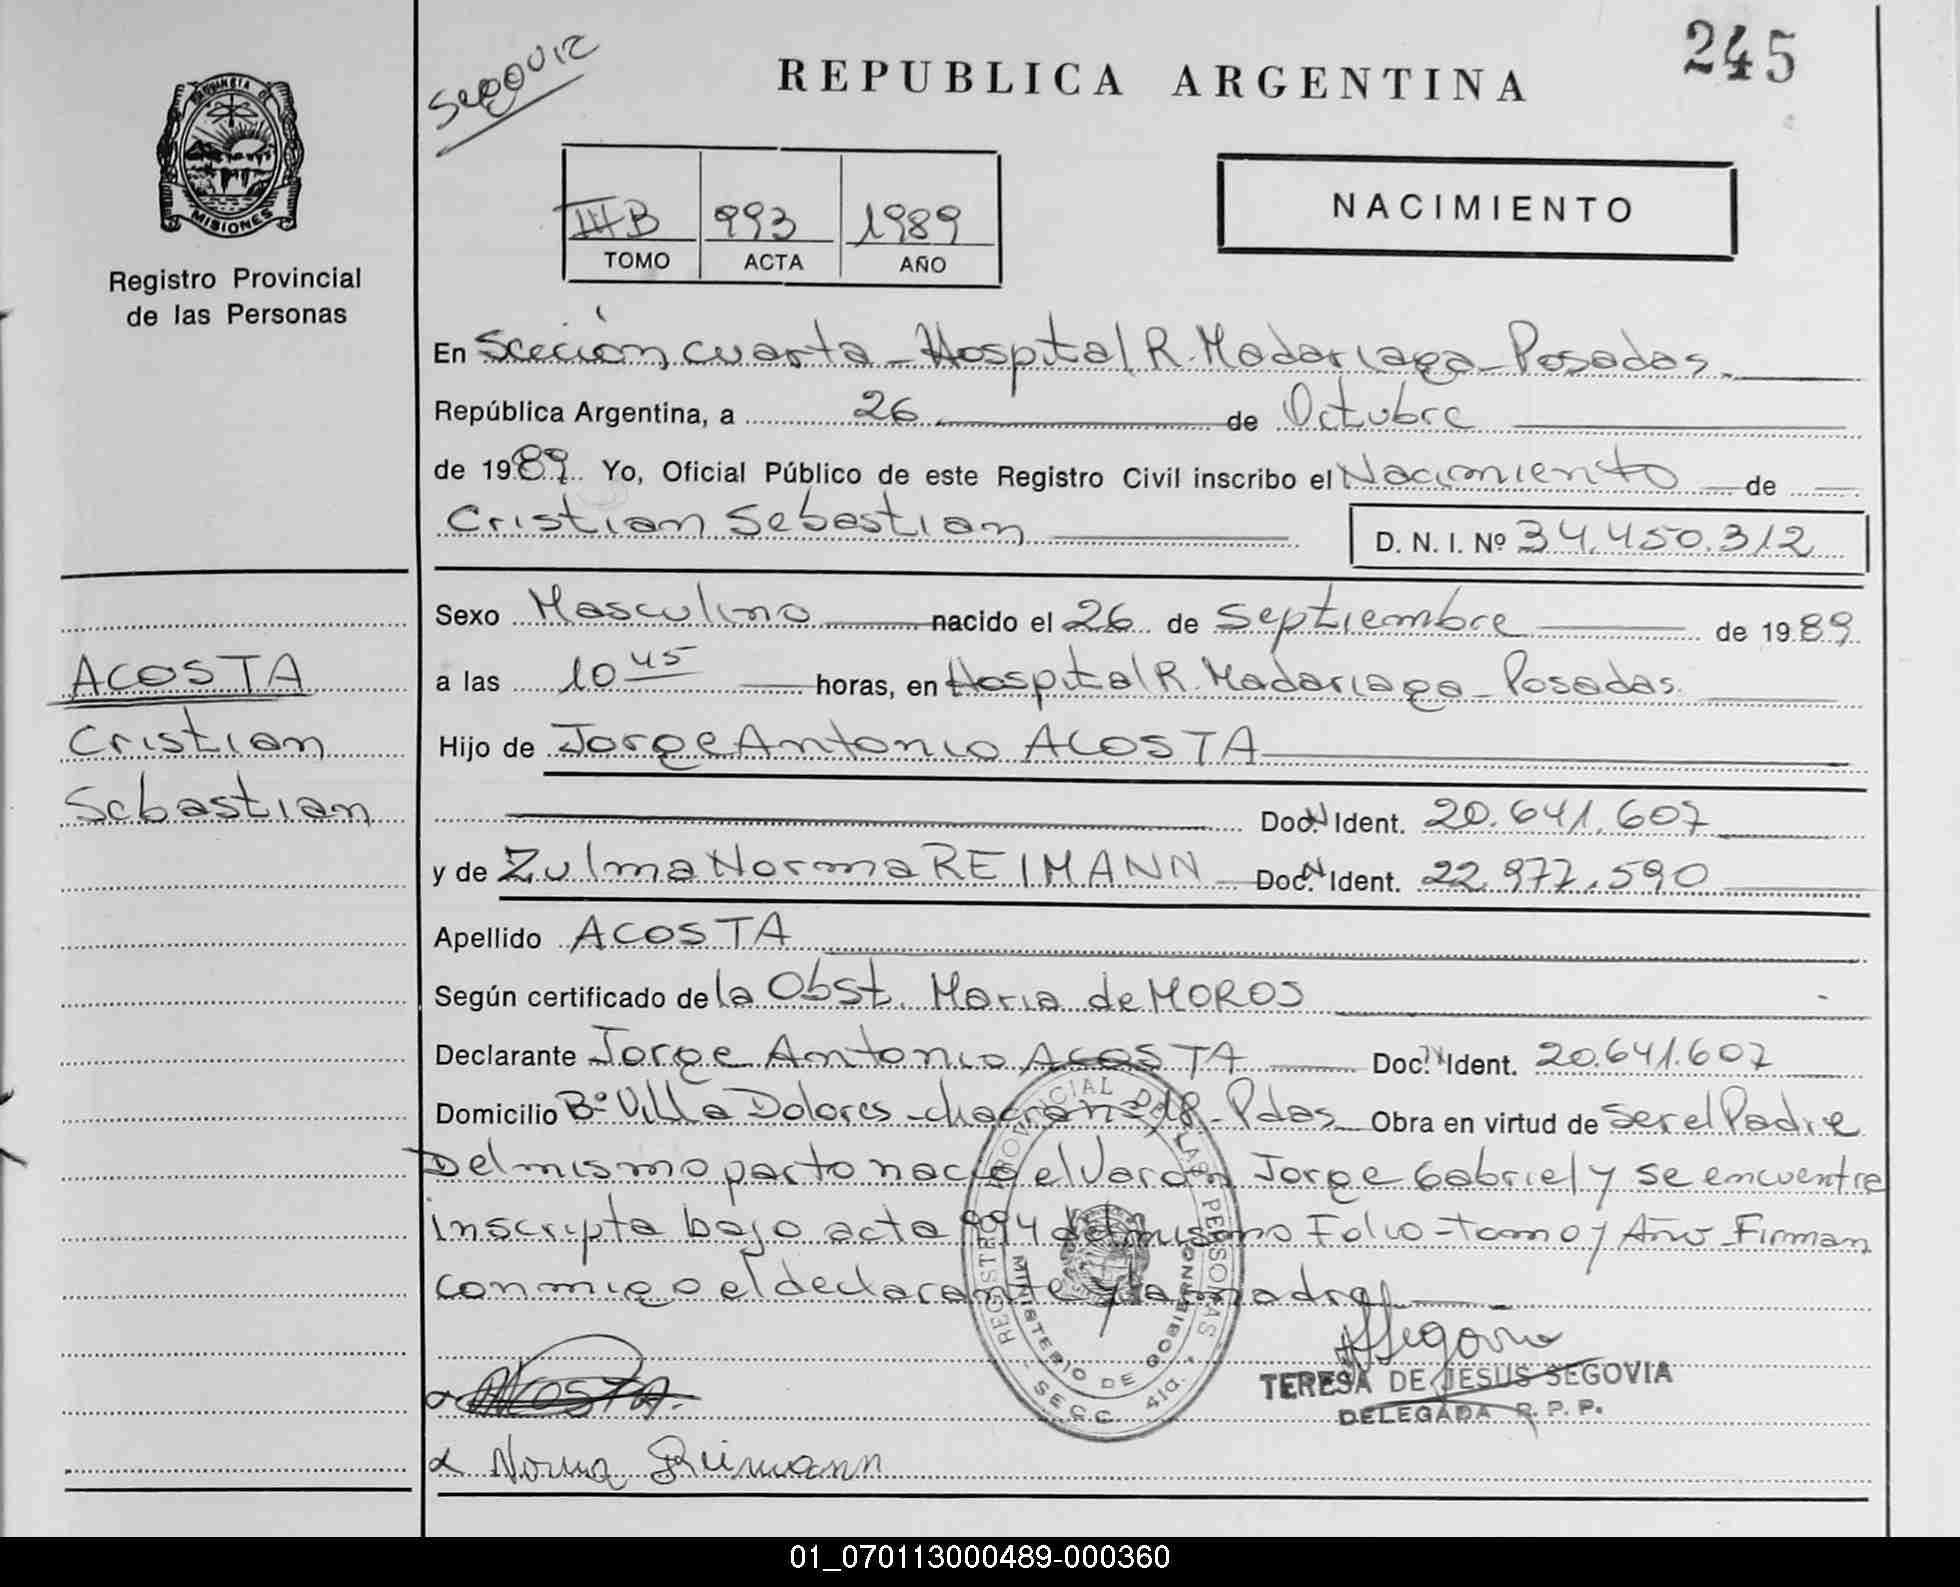 245
Segovia
REPUBLICA ARGENTINA
PROVINCIA DE
MISIONES
Registro Provincial
de las Personas
III B 993 1989
TOMO ACTA AÑO
NACIMIENTO
En Sección cuarta - Hospital R. Madariaga - Posadas.
República Argentina, a 26 de Octubre
de 1989. Yo, Oficial Público de este Registro Civil inscribo el Nacimiento de
Cristian Sebastian D. N. I. Nº 34.450.312
Sexo Masculino nacido el 26 de Septiembre de 1989
a las 10 45 horas, en Hospital R. Madariaga - Posadas.
Hijo de Jorge Antonio ACOSTA
Doc. N Ident. 20.641.607
y de Zulma Norma REIMANN Doc. N Ident. 22.977.590
Apellido ACOSTA
Según certificado de la Obst. Maria de MOROS
Declarante Jorge Antonio ACOSTA Doc. N Ident. 20.641.607
Domicilio Bº Villa Dolores - chacra nº 18 - Pdas. Obra en virtud de ser el Padre
Del mismo parto nació el Varón Jorge Gabriel y se encuentra
inscripta bajo acta 994 del mismo Folio - tomo y Año. Firman
conmigo el declarante y la madre
ACOSTA
Cristian
Sebastian
REGISTRO PROVINCIAL DE LAS PERSONAS
MINISTERIO DE GOBIERNO
SECC. 4ta.
Segovia
TERESA DE JESUS SEGOVIA
DELEGADA R. P. P.
ACOSTA.
Norma Reimann
01_070113000489-000360